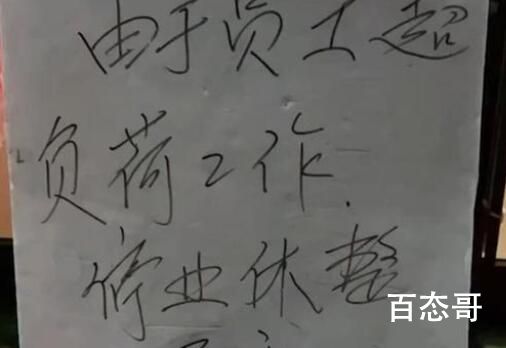 由于员工超
负荷工作.
停业休整
百态哥